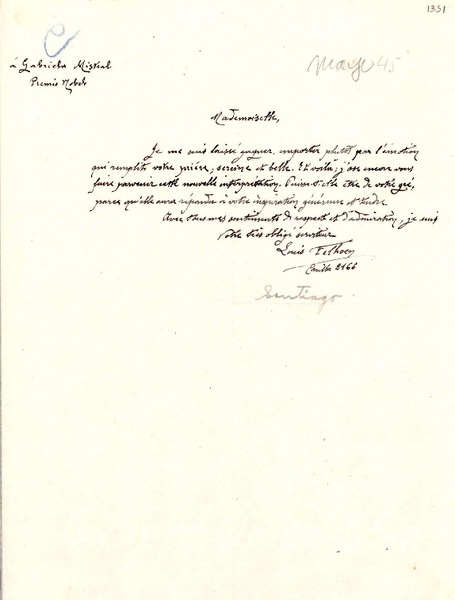 1351
à Gabriela Mistral
Premio Nobel
Mayo 45
Mademoiselle,
Je me suis laissé gagner, emporter plutôt par l'émotion
qui remplit votre prière, sereine et belle. Et voilà; j'ose encore vous
faire parvenir cette nouvelle interprétation. Puisse-t-elle être de votre gré,
parce qu'elle aura répondu à votre inspiration généreuse et tendre.
Avec tous mes sentiments de respect et d'admiration, je suis
Votre très obligé serviteur
Louis
2166
Santiago